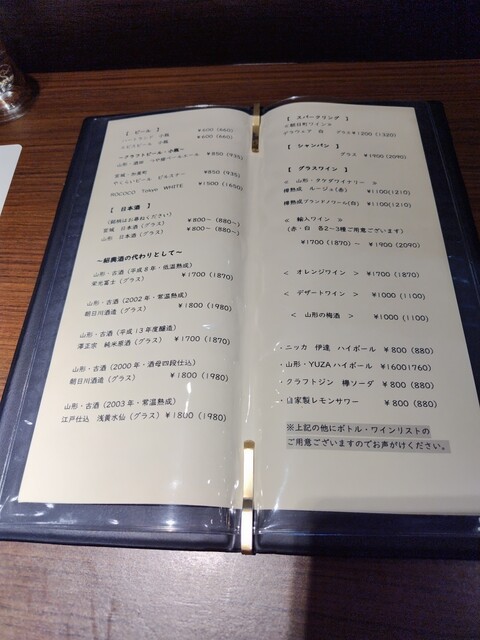 [ ビール ]
小瓶 ¥600 (660)
小瓶 ¥600 (660)
~クラフトビール・小瓶~
¥850 (935)
宮城・加美町
ピルスナー ¥850 (935)
ROCOCO Tokyo WHITE ¥1500 (1650)
[ 日本酒 ]
(銘柄はお尋ねください)
宮城 日本酒 (グラス) ¥800~ (880~)
山形 日本酒 (グラス) ¥800~ (880~)
~紹興酒の代わりとして~
山形・古酒 (平成8年・低温熟成)
栄光冨士 (グラス) ¥1700 (1870)
山形・古酒 (2002年・常温熟成)
朝日川酒造 (グラス) ¥1800 (1980)
山形・古酒 (平成13年度醸造)
澤正宗 純米原酒 (グラス) ¥1700 (1870)
山形・古酒 (2000年・酒母四段仕込)
朝日川酒造 (グラス) ¥1800 (1980)
山形・古酒 (2003年・常温熟成)
江戸仕込 浅黄水仙 (グラス) ¥1800 (1980)
[ スパークリング ]
☆朝日町ワイン☆
白 グラス ¥1200 (1320)
[ シャンパン ]
グラス ¥1900 (2090)
[ グラスワイン ]
< 山形・タケダワイナリー >
樽熟成 ルージュ(赤) ¥1100(1210)
樽熟成ブランドノワール(白) ¥1100(1210)
< 輸入ワイン >
(赤・白 各2~3種ご用意ございます)
¥1700 (1870) ~ ¥1900 (2090)
< オレンジワイン > ¥1700 (1870)
< デザートワイン > ¥1000 (1100)
< 山形の梅酒 > ¥1000 (1100)
・ニッカ 伊達 ハイボール ¥800 (880)
・山形・YUZA ハイボール ¥1600 1760)
・クラフトジン 樽ソーダ ¥800 (880)
・自家製レモンサワー ¥800 (880)
※上記の他にボトル・ワインリストの
ご用意ございますのでお声がけください。